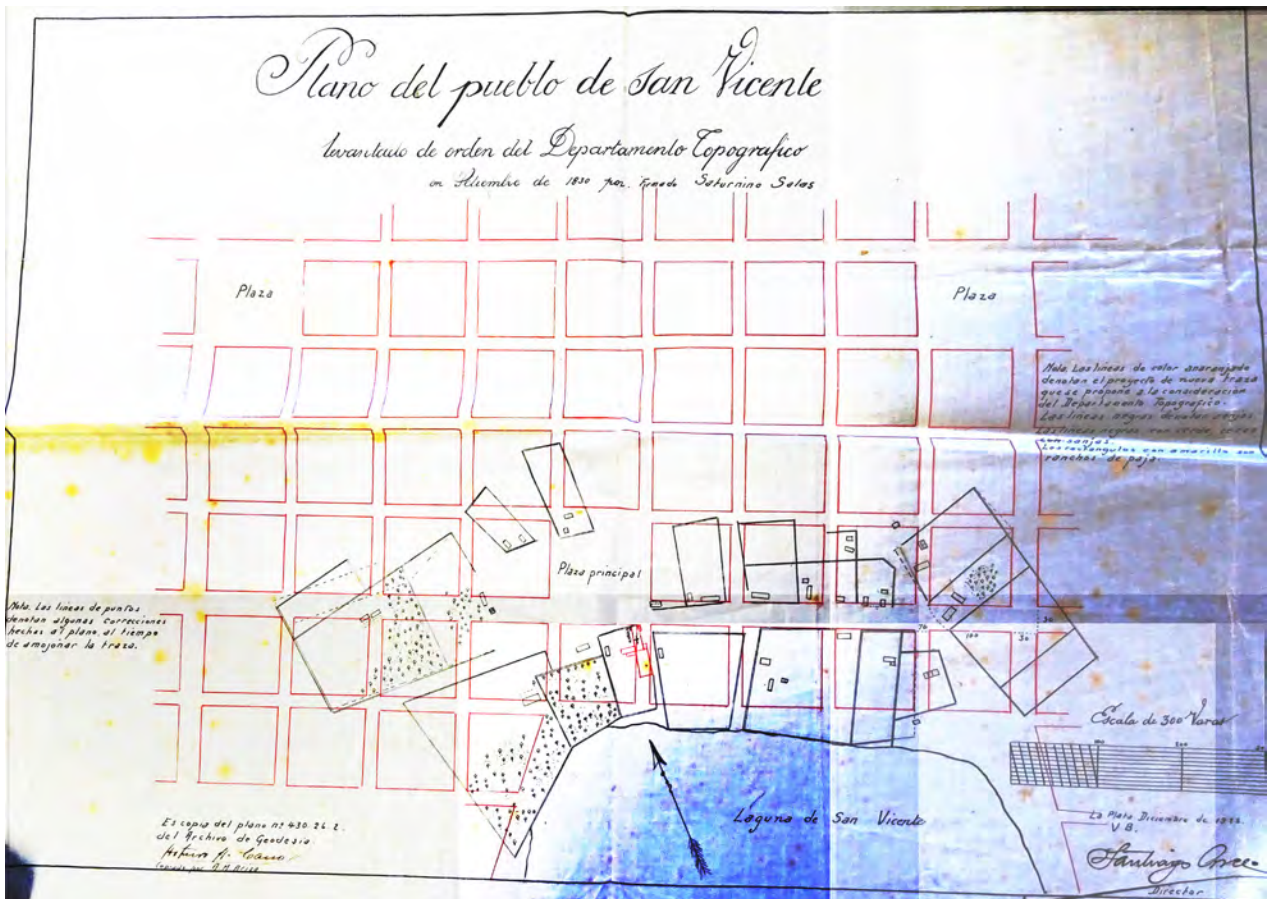 Plano del pueblo de San Vicente
levantado de orden del Departamento Topografico
en de 1830 por Saturnino Salas
Plaza
Plaza
Nota. Las lineas de color anaranjado
denotan el proyecto de nueva traza
que se propone a la consideración
del Departamento Topografico.
Las lineas negras denotan zanjas
Las lineas negras con verde
con zanjas.
Los rectangulos con amarillo son
ranchos de paja.
Plaza principal
Nota. Las lineas de puntos
denotan algunas correcciones
hechas al plano, al tiempo
de amojonar la traza.
70
100
30
30
Escala de 300 Varas
100
200
Laguna de San Vicente
Es copia del plano nº 430.26.2.
del Archivo de Geodesia.
Arturo A.
La Plata Diciembre de
V B.
Santiago
Director